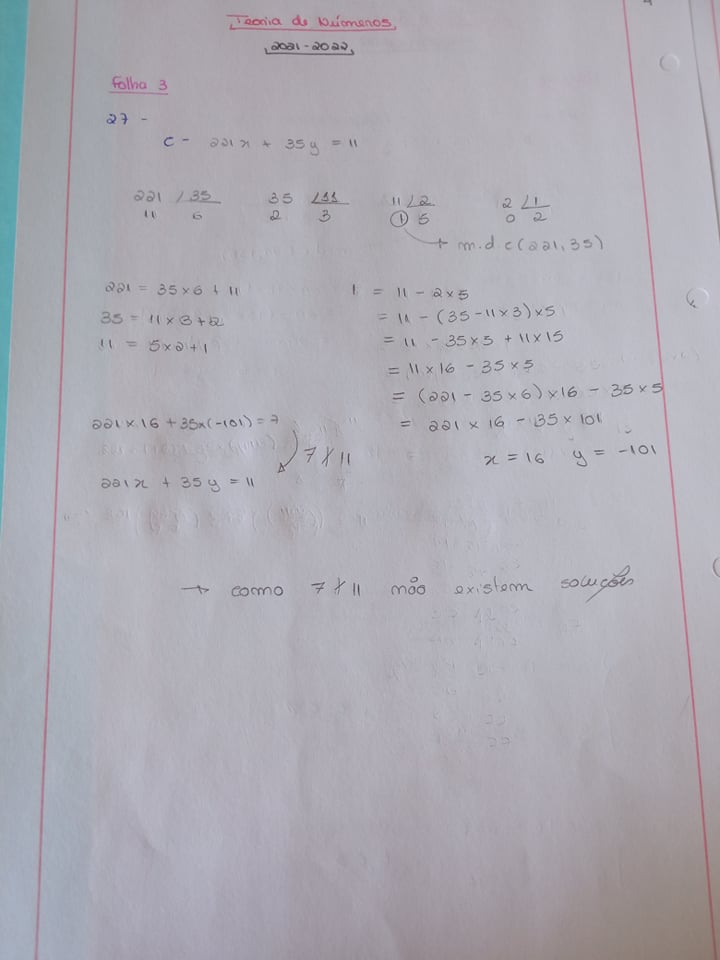 Teoria de Números
2021-2022
Folha 3
27 -
c - 221x + 35y = 11
221 / 35    35 / 11    11 / 2    2 / 1
11 6    2 3    1 5    0 2
→ m.d.c(221,35)
221 = 35×6 + 11
35 = 11×3+2
11 = 5×2+1
1 = 11 - 2×5
= 11 - (35-11×3)×5
= 11 - 35×5 + 11×15
= 11×16 - 35×5
= (221 - 35×6)×16 - 35×5
= 221 × 16 - 35×101
x = 16 y = -101
221×16 +35×(-101)=7
7∤11
221x + 35y = 11
→ como 7∤11 não existem soluções